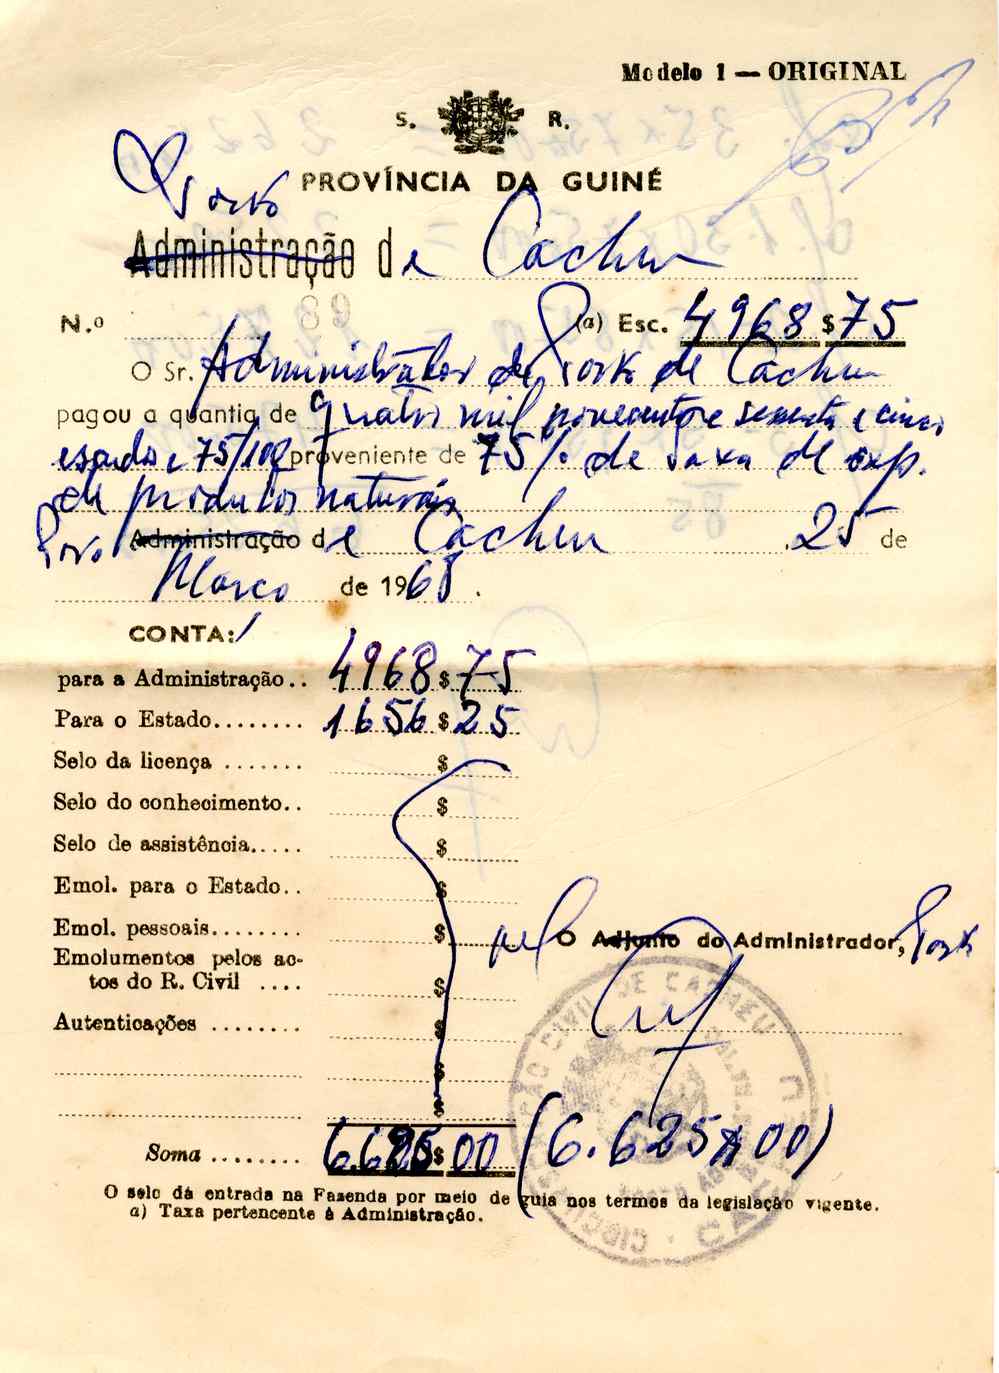 Modelo 1 — ORIGINAL
S. R.
PROVÍNCIA DA GUINÉ
Posto
Administração de Cacheu
N.º (a) Esc. 4968$75
O Sr. Administrador do Posto de Cacheu
pagou a quantia de quatro mil novecentos e sessenta e cinco
escudos e 75/100 proveniente de 75% de taxa de exp.
de produtos naturais
Posto Administração de Cacheu, 25 de
Março de 1968.
CONTA:
para a Administração.. 4968$75
Para o Estado........ 1656$25
Selo da licença ....... $
Selo do conhecimento.. $
Selo de assistência..... $
Emol. para o Estado.. $
Emol. pessoais........ $
pel O Adjunto do Administrador, Posto
Emolumentos pelos ac-
tos do R. Civil .... $
Autenticações ........ $
$
$
Soma ........ 6.625$00 (6.625$00)
O selo dá entrada na Fazenda por meio de guia nos termos da legislação vigente.
a) Taxa pertencente à Administração.